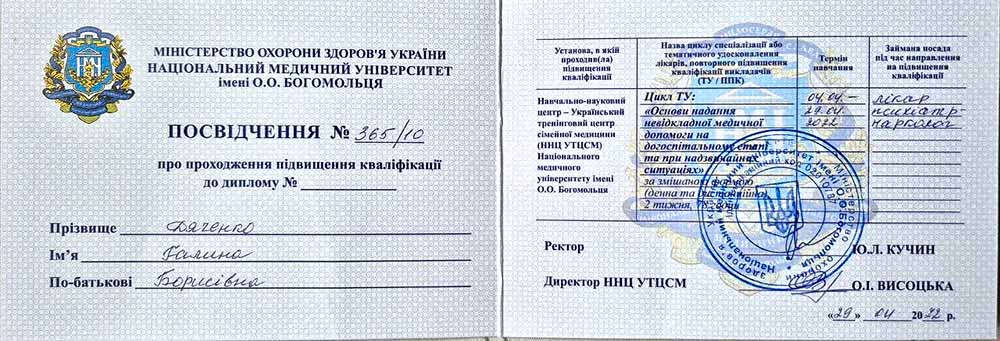 МІНІСТЕРСТВО ОХОРОНИ ЗДОРОВ'Я УКРАЇНИ
НАЦІОНАЛЬНИЙ МЕДИЧНИЙ УНІВЕРСИТЕТ
імені О.О. БОГОМОЛЬЦЯ
ПОСВІДЧЕННЯ № 365/10
про проходження підвищення кваліфікації
до диплому №
Прізвище Дяченко
Ім'я Галина
По-батькові Борисівна
Установа, в якій проходив(ла) підвищення кваліфікації
Назва циклу спеціалізації або тематичного удосконалення лікарів, повторного підвищення кваліфікації викладачів (ТУ / ППК)
Термін навчання
Займана посада під час направлення на підвищення кваліфікації
Навчально-науковий
центр – Український
тренінговий центр
сімейної медицини
(ННЦ УТЦСМ)
Національного
медичного
університету імені
О.О. Богомольця
Цикл ТУ:
«Основи надання
невідкладної медичної
допомоги на
догоспітальному етапі
та при надзвичайних
ситуаціях»
за змішаною формою
(денна та дистанційна)
2 тижня, 78 годин
04.04.–
29.04.
2022
лікар
психіатр-
нарколог
Ректор Ю.Л. КУЧИН
Директор ННЦ УТЦСМ О.І. ВИСОЦЬКА
«29» 04 2022 р.
Міністерство охорони здоров'я України
Національний медичний університет імені О.О.Богомольця
Ідентифікаційний код 02010787